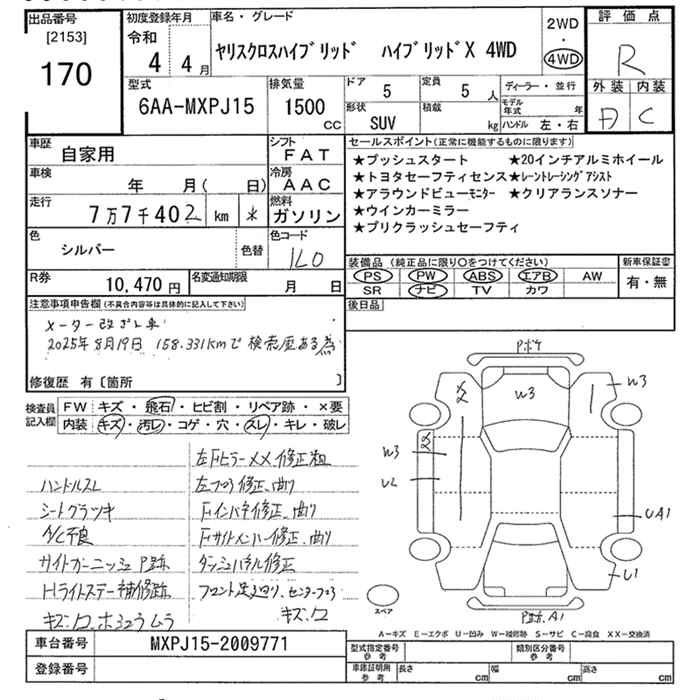 出品番号
[2153]
170
初度登録年月
令和
4年 4月
車名・グレード
ヤリスクロスハイブリッド ハイブリッドX 4WD
2WD
・
4WD
評価点
R
外装 内装
C
型式
6AA-MXPJ15
排気量
1500
CC
ドア
5
定員
5 人
形状
SUV
積載
kg
ディーラー・並行
モデル年式 年
ハンドル 左・右
車歴
自家用
シフト
FAT
車検
年 月( 日)
冷房
AAC
走行
7万7千402 km
燃料
ガソリン
色
シルバー
色替
色コード
1L0
R券
10,470 円
名変通知期限
月 日
セールスポイント(正常に機能するものに限ります)
★プッシュスタート ★20インチアルミホイール
★トヨタセーフティセンス★レーントレーシングアシスト
★アラウンドビューモニター ★クリアランスソナー
★ウインカーミラー
★プリクラッシュセーフティ
装備品(純正品に限り○をつけてください)
PS PW ABS エアB AW
SR ナビ TV カワ
新車保証書
有・無
後日品
注意事項申告欄(不具合内容等は具体的に記入して下さい)
メーター改ざん車
2025年8月19日 158.331kmで検索歴ある為
修復歴 有〔箇所 〕
検査員
記入欄
FW キズ・飛石・ヒビ割・リペア跡・×要
内装 キズ・汚レ・コゲ・穴・ズレ・キレ・破レ
左Fピラー××修正粗
ハンドルスレ
左フロア修正、曲り
シートクラツキ
Fインパネ修正、曲り
A/C不良
Fサイドメンバー修正、曲り
サイドガーニッシュP跡
ダッシュパネル修正
Hライトステー補修跡
フロント足廻り、センターフロア
キズ・ワレ・ホショウムラ
キズ・ワレ
Pボケ
W3
W3
W3
U2
UA1
U1
P跡、A1
スペア
A－キズ E－エクボ U－凹み W－補修跡 S－サビ C－腐食 XX－交換済
車台番号
MXPJ15-2009771
登録番号
型式指定番号
参考
類別区分番号
参考
車庫証明用
参考
長さ cm
幅 cm
高さ cm